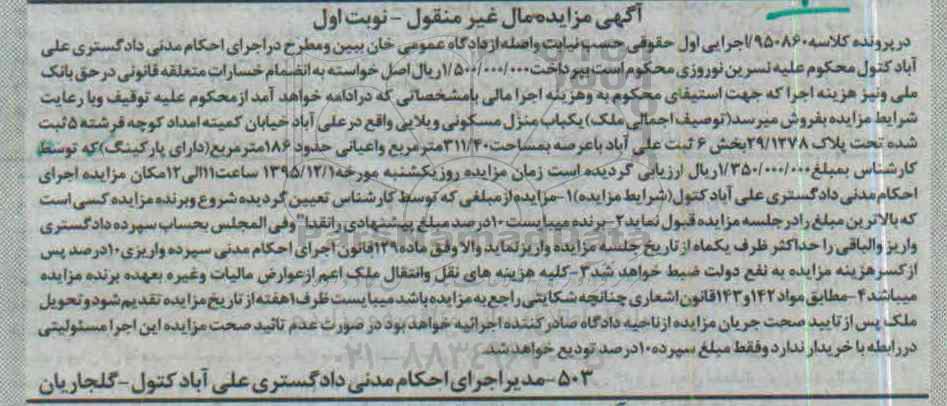 آگهی مزایده مال غیر منقول - نوبت اول
در پرونده کلاسه ۹۵۰۸۶۰/اجرایی اول حقوقی حسب نیابت واصله از دادگاه عمومی خان ببین ومطرح در اجرای احکام مدنی دادگستری علی
آباد کتول محکوم علیه نسرین نوروزی محکوم است بپرداخت ۱/۵۰۰/۰۰۰/۰۰۰ ریال اصل خواسته به انضمام خسارات متعلقه قانونی در حق بانک
ملی ونیز هزینه اجرا که جهت استیفای محکوم به وهزینه اجرا مالی بامشخصاتی که درادامه خواهد آمد از محکوم علیه توقیف وبا رعایت
شرایط مزایده بفروش میرسد(توصیف اجمالی ملک)یکباب منزل مسکونی ویلایی واقع در علی آباد خیابان کمیته امداد کوچه فرشته ۵ ثبت
شده تحت پلاک ۲۹/۱۲۷۸بخش ۶ ثبت علی آباد باعرصه بمساحت۳۱۱/۴۰مترمربع واعیانی حدود ۱۸۶مترمربع(دارای پارکینگ)که توسط
کارشناس بمبلغ۱/۳۵۰/۰۰۰/۰۰۰ریال ارزیابی گردیده است زمان مزایده روزیکشنبه مورخه۱۳۹۵/۱۲/۱ ساعت۱۱الی۱۲مکان مزایده اجرای
احکام مدنی دادگستری علی آباد کتول(شرایط مزایده)۱-مزایده ازمبلغی که توسط کارشناس تعیین گردیده شروع وبرنده مزایده کسی است
که بالاترین مبلغ رادرجلسه مزایده قبول نماید۲-برنده میبایست ۱۰درصد مبلغ پیشنهادی رانقدا" وفی المجلس بحساب سپرده دادگستری
واریز والباقی را حداکثر ظرف یکماه از تاریخ جلسه مزایده واریزنماید والا وفق ماده۱۲۹قانون اجرای احکام مدنی سپرده واریزی ۱۰درصد پس
ازکسرهزینه مزایده به نفع دولت ضبط خواهد شد۳-کلیه هزینه های نقل وانتقال ملک اعم ازعوارض مالیات وغیره بعهده برنده مزایده
میباشد۴-مطابق مواد۱۴۲و۱۴۳قانون اشعاری چنانچه شکایتی راجع به مزایده باشد میبایست ظرف۱هفته از تاریخ مزایده تقدیم شود وتحویل
ملک پس از تایید صحت جریان مزایده ازناحیه دادگاه صادرکننده اجرائیه خواهد بود در صورت عدم تائید صحت مزایده این اجرا مسئولیتی
دررابطه با خریدار ندارد وفقط مبلغ سپرده۱۰درصد تودیع خواهد شد.
۵۰۳-مدیر اجرای احکام مدنی دادگستری علی آباد کتول-گلچاریان